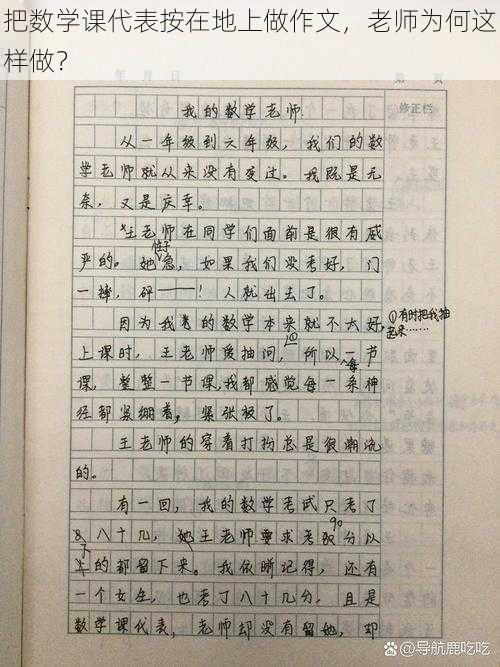 把数学课代表按在地上做作文，老师为何这
样做？
年 月 日
第 页
我的数学老师
修正栏
从一年级到六年级，我们的数
学老师就从来没有变过。我既是无
奈，又是庆幸。
王老师在同学们面前是很有威
严的。她性子急，如果我们没考好，门
一摔，砰——！人就出去了。
因为我的数学本来就不大好，
①有时把我抽
起来……
上课时，王老师爱抽问，①所以每一节
课，整整一节课，我都感觉每一条神
经都紧绷着，紧张极了。
王老师的穿着打扮总是很潮流
的。
有一回，我的数学考试只考了
八十几，王老师要求考90分以
下的都留下来。我依晰记得，还有
一个女生，也考了八十几分，且是
数学课代表，老师却没有留她，却
@导航鹿吃吃